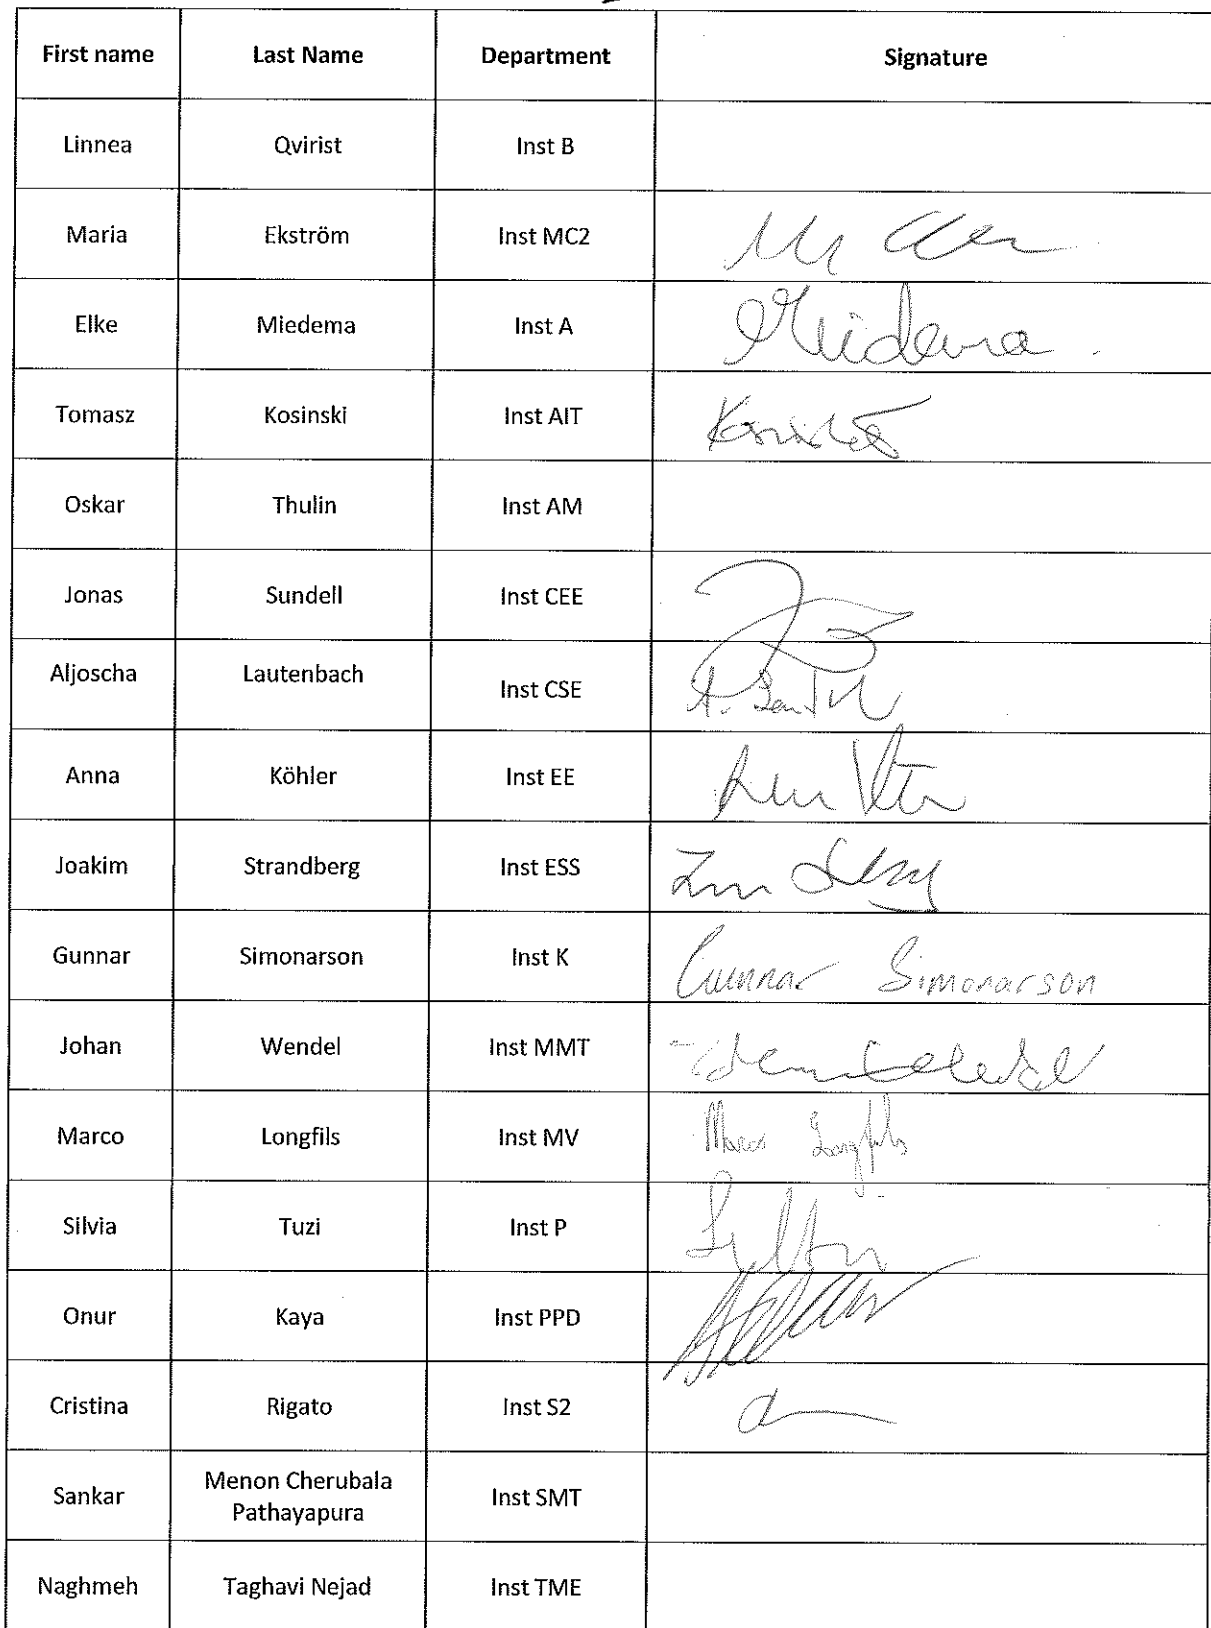 First name Last Name Department Signature
Linnea Qvirist Inst B
Maria Ekström Inst MC2
Elke Miedema Inst A Miedema
Tomasz Kosinski Inst AIT
Oskar Thulin Inst AM
Jonas Sundell Inst CEE
Aljoscha Lautenbach Inst CSE
Anna Köhler Inst EE
Joakim Strandberg Inst ESS
Gunnar Simonarson Inst K Gunnar Simonarson
Johan Wendel Inst MMT
Marco Longfils Inst MV Marco Longfils
Silvia Tuzi Inst P
Onur Kaya Inst PPD
Cristina Rigato Inst S2
Sankar Menon Cherubala Inst SMT
Pathayapura
Naghmeh Taghavi Nejad Inst TME